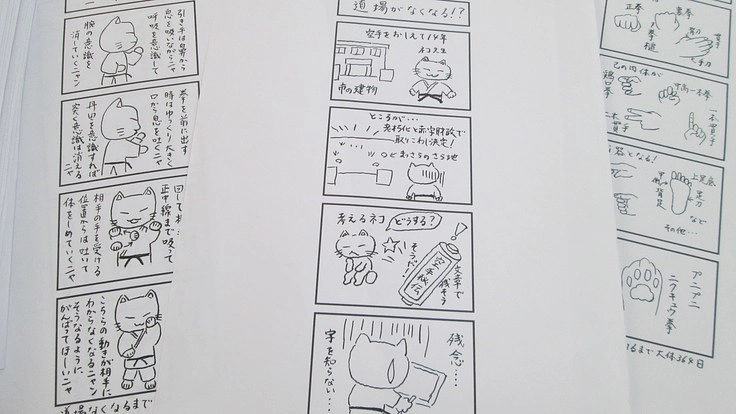 引き手は自然から
息を吸いながらニャ
呼吸を意識して
腕の意識を
消していくニャン
拳を前に出す
時はゆっくり大きく
口から息を吐くニャ
丹田を意識すれば
突く意識は消える
ニャン
正中線まで吸って
相手の手を受ける
位置からは吐いて
体をしめていくニャ
こちらの動きが相手に
わからなくなるニャン
そうなるように
がんばってほしいニャ
道場がなくなるまで
道場がなくなる!?
空手をおしえて14年
ネコ先生
市の建物
ところが…
老朽化と赤字財政で
取りこわし決定!
まっさらのさら地
考えるネコ
どうする?
そうだ!
空手秘伝
文章で
残そう
残念……
字を知らない…
正拳
裏拳
拳槌
貫手
中高一本拳
一本貫手
となる!
上足底
足刀
背足
など
その他…
プニプニ
ニクキュウ拳
16まで大体364日